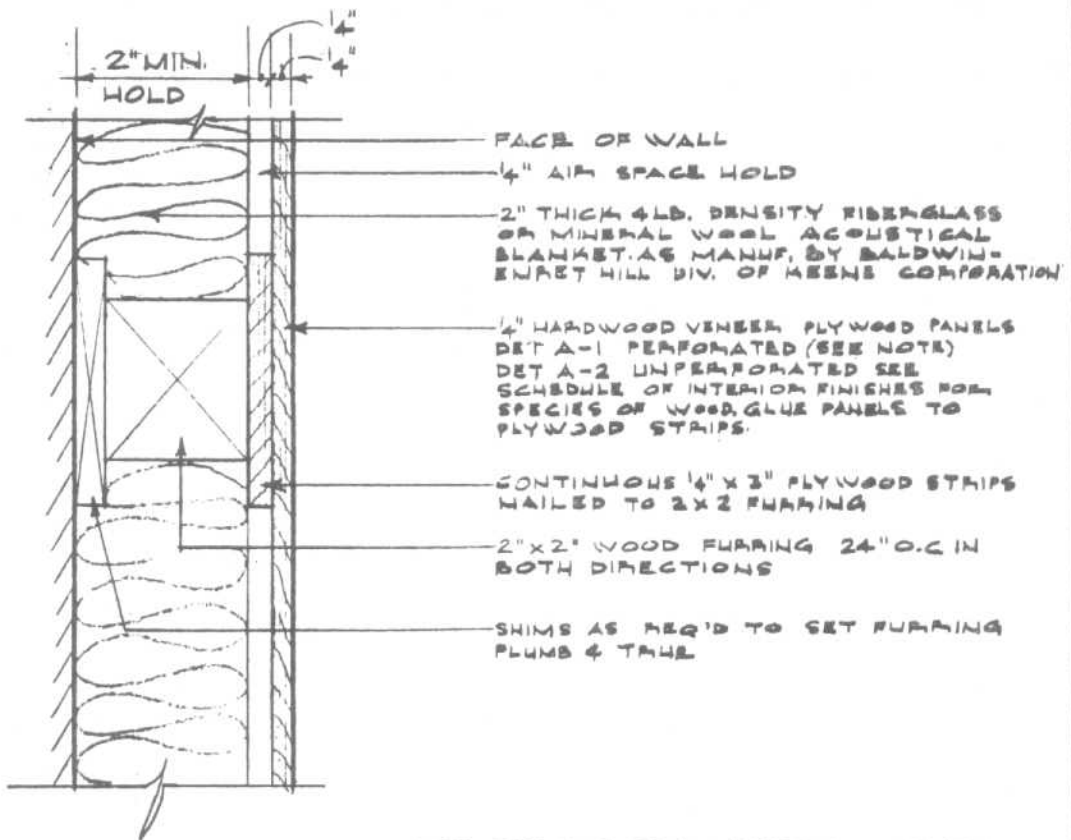 1/4"
2" MIN.
1/4"
HOLD
FACE OF WALL
1/4" AIR SPACE HOLD
2" THICK 4LB. DENSITY FIBERGLASS
OR MINERAL WOOL ACOUSTICAL
BLANKET. AS MANUF. BY BALDWIN-
EHRET HILL DIV. OF KEENE CORPORATION
1/4" HARDWOOD VENEER PLYWOOD PANELS
DET A-1 PERFORATED (SEE NOTE)
DET A-2 UNPERFORATED SEE
SCHEDULE OF INTERIOR FINISHES FOR
SPECIES OF WOOD, GLUE PANELS TO
PLYWOOD STRIPS.
CONTINUOUS 1/4" X 3" PLYWOOD STRIPS
NAILED TO 2X2 FURRING
2" X 2" WOOD FURRING 24" O.C IN
BOTH DIRECTIONS
SHIMS AS REQ'D TO SET FURRING
PLUMB & TRUE